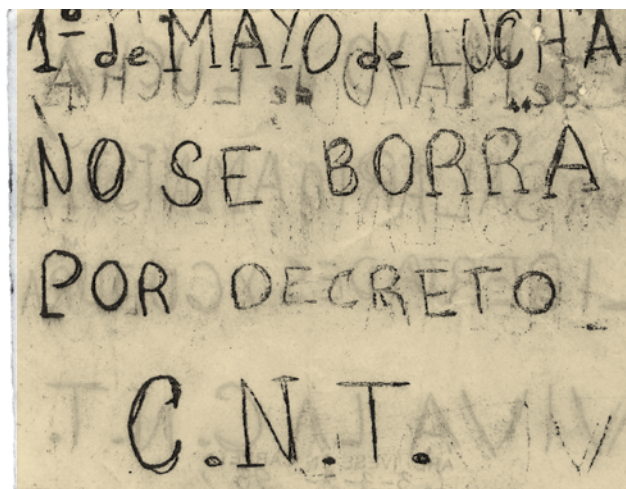 1º de MAYO de LUCHA
NO SE BORRA
POR DECRETO
C.N.T.